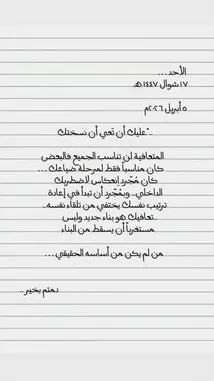 الأحد ...
١٧ شوال ١٤٤٧ هـ
٥ أبريل ٢٠٢٦ م
..."عليك أن تعي أن نسختك
المتعافية لن تناسب الجميع فالبعض
كان مناسباً فقط لمرحلة ضياعك ...
كان مُجّرد إنعكاس لاضطرابك
الداخلي.. وبمجرد أن تبدأ في إعادة
ترتيب نفسك يختفي من تلقاء نفسه..
..تعافيك هو بناء جديد وليس
مستغرباً أن يسقط من البناء
من لم يكن من أساسه الحقيقي ...
دمتم بخير..